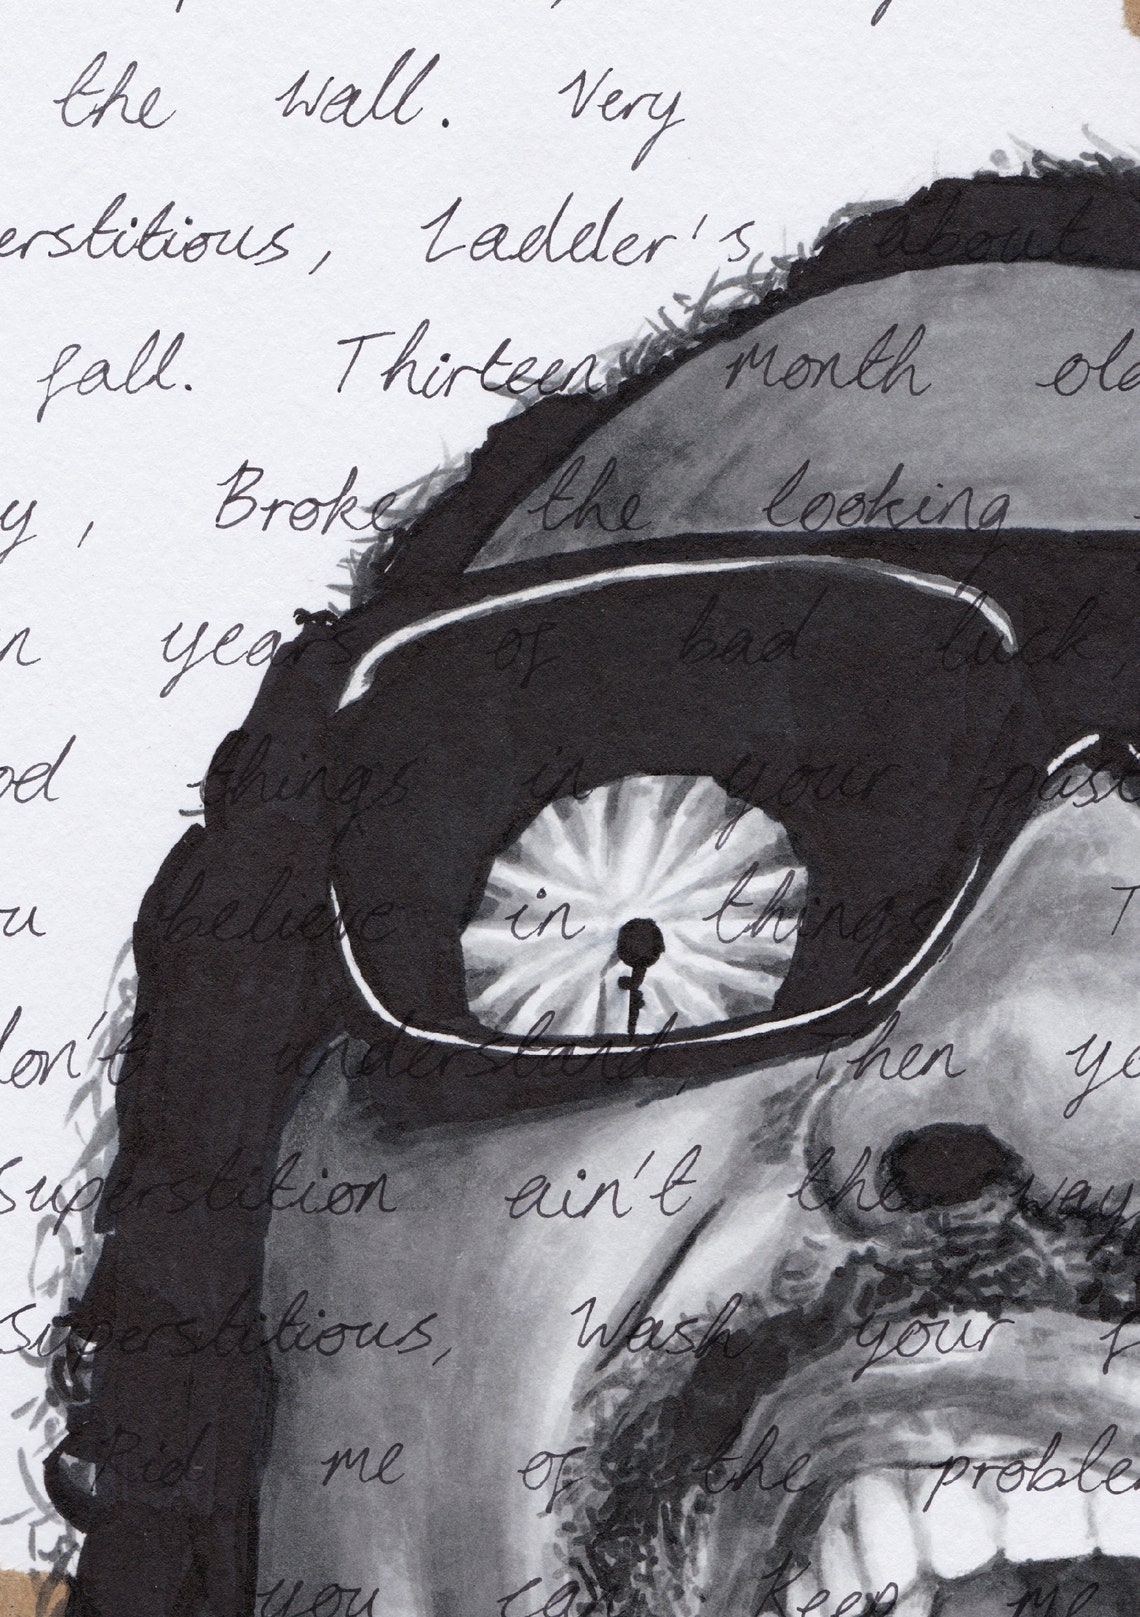 the wall. Very
erstitious, Ladder's about
fall. Thirteen Month old
y, Broke the looking
n years of bad luck,
od things in your past
u believe in things T
don't understand, Then yo
Superstition ain't the way
Superstitious, Wash your f
Rid me of the proble
you can Keep me